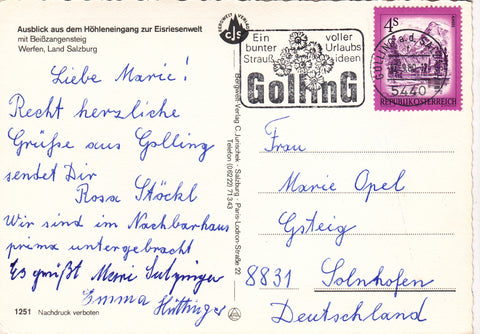 Ausblick aus dem Höhleneingang zur Eisriesenwelt
mit Beißzangensteig
Werfen, Land Salzburg
Liebe Marie!
Recht herzliche
Grüße aus Golling
sendet Dir
Rosa Stöckl
Wir sind im Nachbarhaus
prima untergebracht
Es grüßt Mari
Emma Hüttinger
1251 Nachdruck verboten
BERGWELT VERLAG
cJs
Bergwelt-Verlag C. Jurischek · Salzburg · Paris-Lodron-Straße 22
Telefon (06222) 71343
Ein voller
bunter Urlaubs
Strauß ideen
GollinG
4S
REPUBLIK ÖSTERREICH
GOLLING a. d.
5440
Frau
Marie Opel
Gsteig
8831 Solnhofen
Deutschland